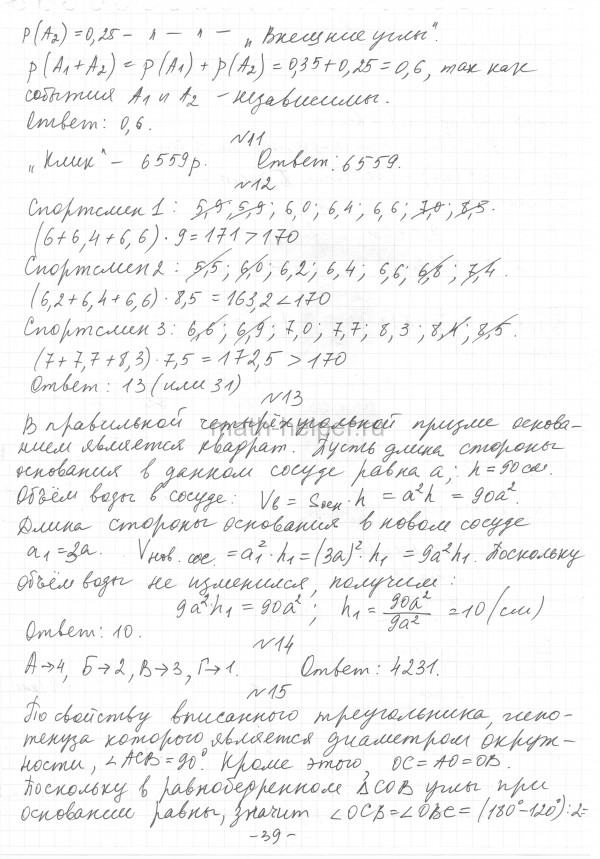 P(A₂) = 0,25 – л – л – „Внешние углы“.
P(A₁ + A₂) = P(A₁) + P(A₂) = 0,35 + 0,25 = 0,6, так как
события A₁ и A₂ – независимы.
Ответ: 0,6.
№11
„Клик“ – 6559р. Ответ: 6559.
№12
Спортсмен 1: 5,9; 5,9; 6,0; 6,4; 6,6; 7,0; 8,5.
(6+6,4+6,6)·9 = 171 > 170
Спортсмен 2: 5,5; 6,0; 6,2; 6,4; 6,6; 6,8; 7,4.
(6,2+6,4+6,6)·8,5 = 163,2 < 170
Спортсмен 3: 6,6; 6,9; 7,0; 7,7; 8,3; 8,4; 8,5.
(7+7,7+8,3)·7,5 = 172,5 > 170
Ответ: 13 (или 31)
№13
В правильной четырёхугольной призме основа-
нием является квадрат. Пусть длина стороны
math-helper.ru
основания в данном сосуде равна a; h = 90 см.
Объём воды в сосуде: Vв = Sосн·h = a²h = 90a².
Длина стороны основания в новом сосуде
a₁ = 3a. Vнов. сос. = a₁²·h₁ = (3a)²·h₁ = 9a²h₁. Поскольку
объём воды не изменился, получим:
9a²·h₁ = 90a²; h₁ = 90a²/9a² = 10 (см)
Ответ: 10.
№14
А→4, Б→2, В→3, Г→1. Ответ: 4231.
№15
По свойству вписанного треугольника, гипо-
тенуза которого является диаметром окруж-
ности, ∠ACB = 90°. Кроме этого, OC = AO = OB.
Поскольку в равнобедренном ΔCOB углы при
основании равны, значит ∠OCB = ∠OBC = (180° – 120°) : 2 =
- 39 -